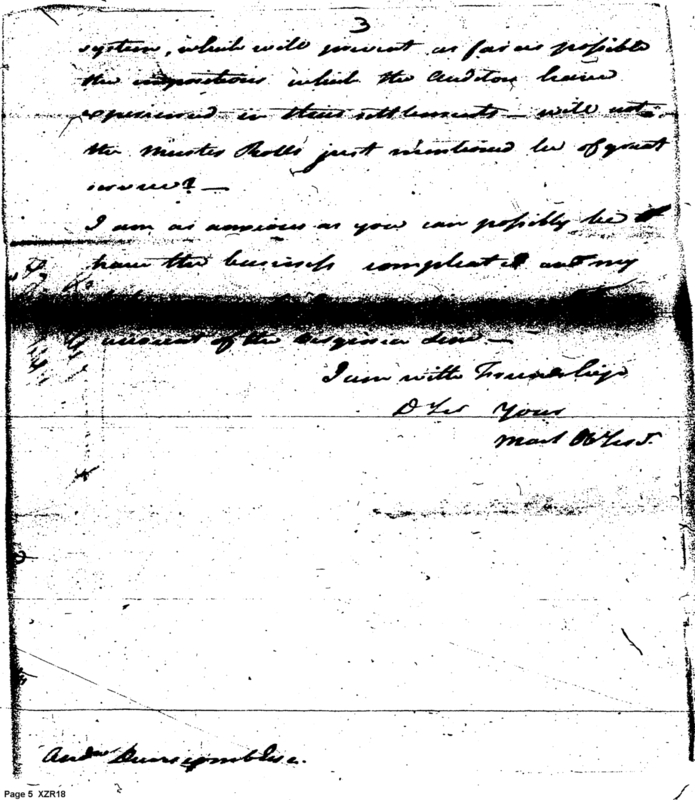 3
system, which will prevent as far as possible
the impositions which the Auditors have
experienced in these settlements – will not
the Muster Rolls just mentioned be of great
service? –
I am as anxious as you can possibly be to
have the business compleated and my
account of the Virginia Line –
I am with Friendship
D Sir Yours
Most Ob Ser.
Andw Dunscomb Esq.
Page 5 XZR18